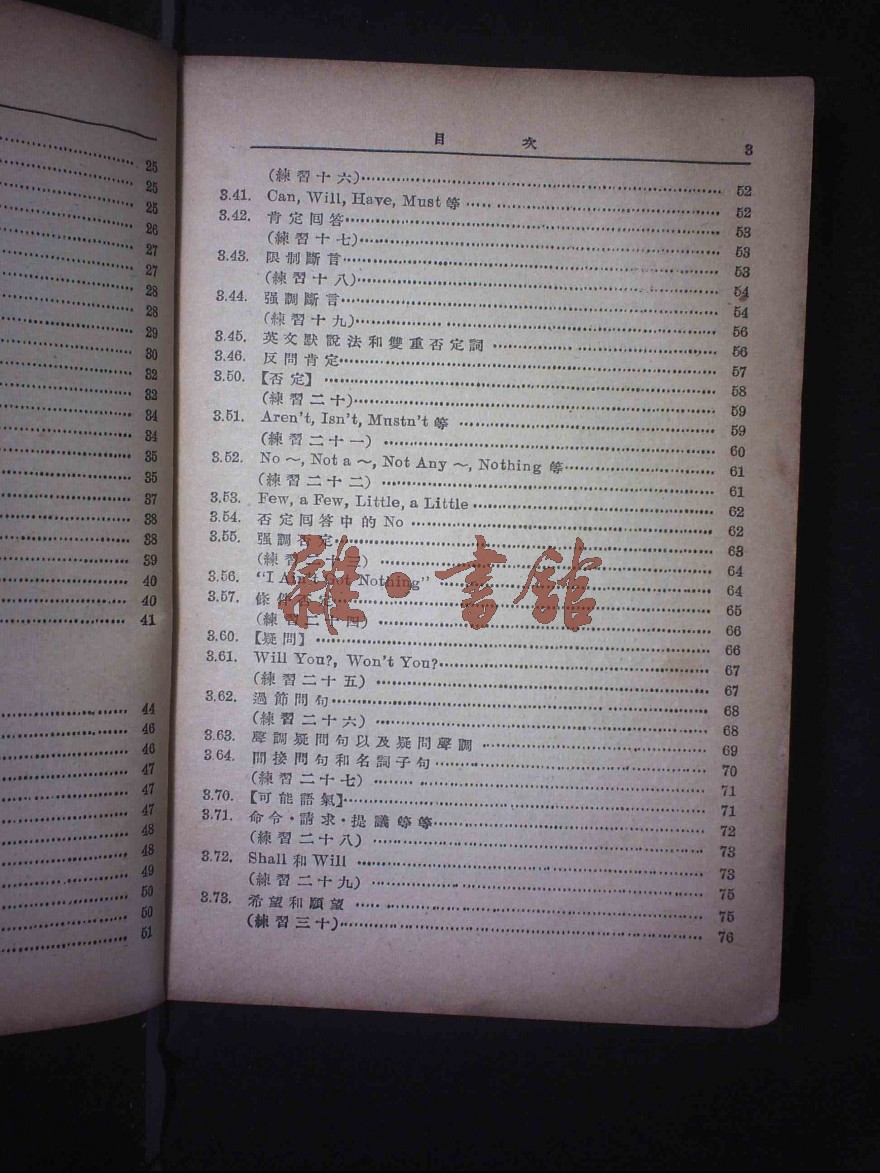 25
25
25
26
27
27
28
28
29
30
32
32
34
34
35
35
37
38
38
39
40
40
41
44
46
46
47
47
47
48
48
49
50
50
51
目 次 3
(練習十六) 52
3.41. Can, Will, Have, Must 等 52
3.42. 肯定回答 53
(練習十七) 53
3.43. 限制斷言 53
(練習十八) 54
3.44. 强調斷言 54
(練習十九) 56
3.45. 英文默說法和雙重否定詞 56
3.46. 反問肯定 57
3.50. 【否定】 58
(練習二十) 59
3.51. Aren't, Isn't, Mustn't 等 59
(練習二十一) 60
3.52. No ～, Not a ～, Not Any ～, Nothing 等 61
(練習二十二) 61
3.53. Few, a Few, Little, a Little 62
3.54. 否定回答中的 No 62
3.55. 强調否定 63
(練習二十三) 64
3.56. "I Ain't Got Nothing" 64
3.57. 條件否定 65
(練習二十四) 66
3.60. 【疑問】 66
3.61. Will You?, Won't You? 67
(練習二十五) 67
3.62. 過節問句 68
(練習二十六) 68
3.63. 聲調疑問句以及疑問聲調 69
3.64. 間接問句和名詞子句 70
(練習二十七) 71
3.70. 【可能語氣】 71
3.71. 命令·請求·提議等等 72
(練習二十八) 73
3.72. Shall 和 Will 73
(練習二十九) 75
3.73. 希望和願望 75
(練習三十) 76
雜·書館